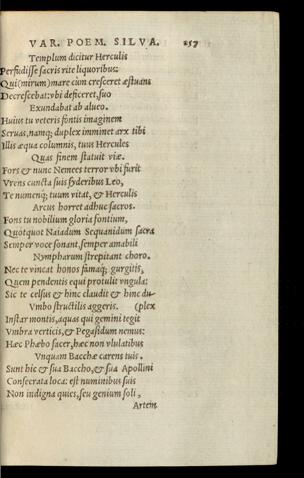 VAR. POEM. SILVA. 257
Templum dicitur Herculis
Perfudisse sacris rite liquoribus:
Qui (mirum) mare cùm cresceret æstuans
Decrescebat: vbi deficeret, suo
Exundabat ab alueo.
Huius tu veteris fontis imaginem
Seruas, namq; duplex imminet arx tibi
Illis æqua columnis, tuus Hercules
Quas finem statuit viæ.
Fors & nunc Nemees terror vbi furit
Vrens cuncta suis syderibus Leo,
Te numenq; tuum vitat, & Herculis
Arcus horret adhuc sacros.
Fons tu nobilium gloria fontium,
Quotquot Naiadum Sequanidum sacra
Semper voce sonant, semper amabili
Nympharum strepitant choro.
Nec te vincat honos famaq; gurgitis,
Quem pendentis equi protulit vngula:
Sic te celsus & hinc claudit & hinc du-
Vmbo structilis aggeris. (plex
Instar montis, aquas qui gemini tegit
Vmbra verticis, & Pegasidum nemus:
Hæc Phœbo sacer, hæc non vlulatibus
Vnquam Bacchæ carens tuis.
Sunt hic & sua Baccho, & sua Apollini
Consecrata loca: est numinibus suis
Non indigna quies, seu genium soli,
Artem